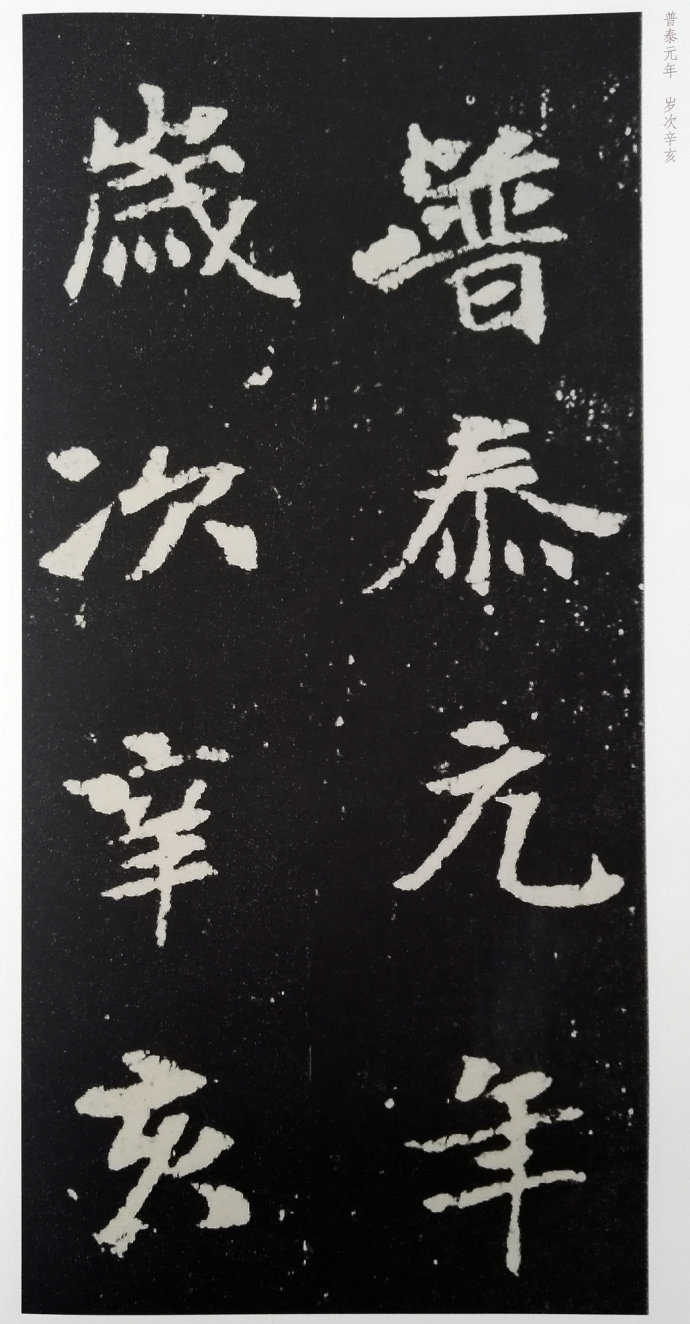 普泰元年 岁次辛亥
普泰元年
歲次辛亥